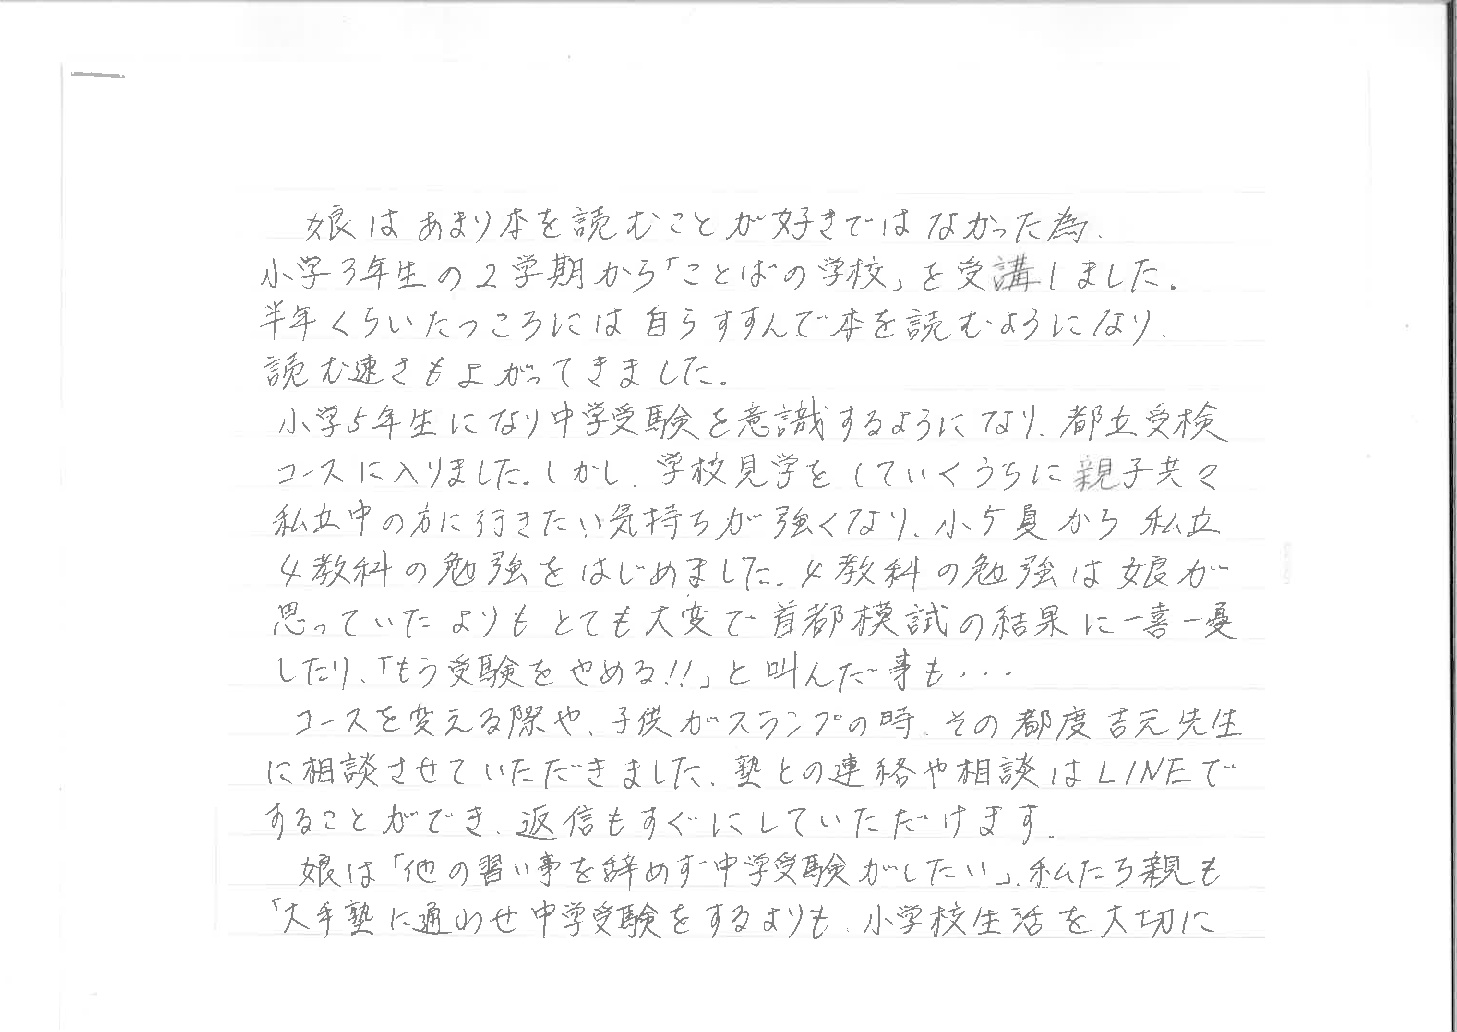 娘はあまり本を読むことが好きではなかった為、
小学3年生の2学期から「ことばの学校」を受講しました。
半年くらいたったころには自らすすんで本を読むようになり、
読む速さもよがってきました。
小学5年生になり中学受験を意識するようになり、都立受検
コースに入りました。しかし、学校見学をしていくうちに親子共々
私立中の方に行きたい気持ちが強くなり、小5夏から私立
4教科の勉強をはじめました。4教科の勉強は娘が
思っていたよりもとても大変で首都模試の結果に一喜一憂
したり、「もう受験をやめる!!」と叫んだ事も...
コースを変える際や、子供がスランプの時、その都度吉元先生
に相談させていただきました。塾との連絡や相談はLINEで
することができ、返信もすぐにしていただけます。
娘は「他の習い事を辞めず中学受験がしたい」、私たち親も
「大手塾に通わせ中学受験をするよりも、小学校生活を大切に